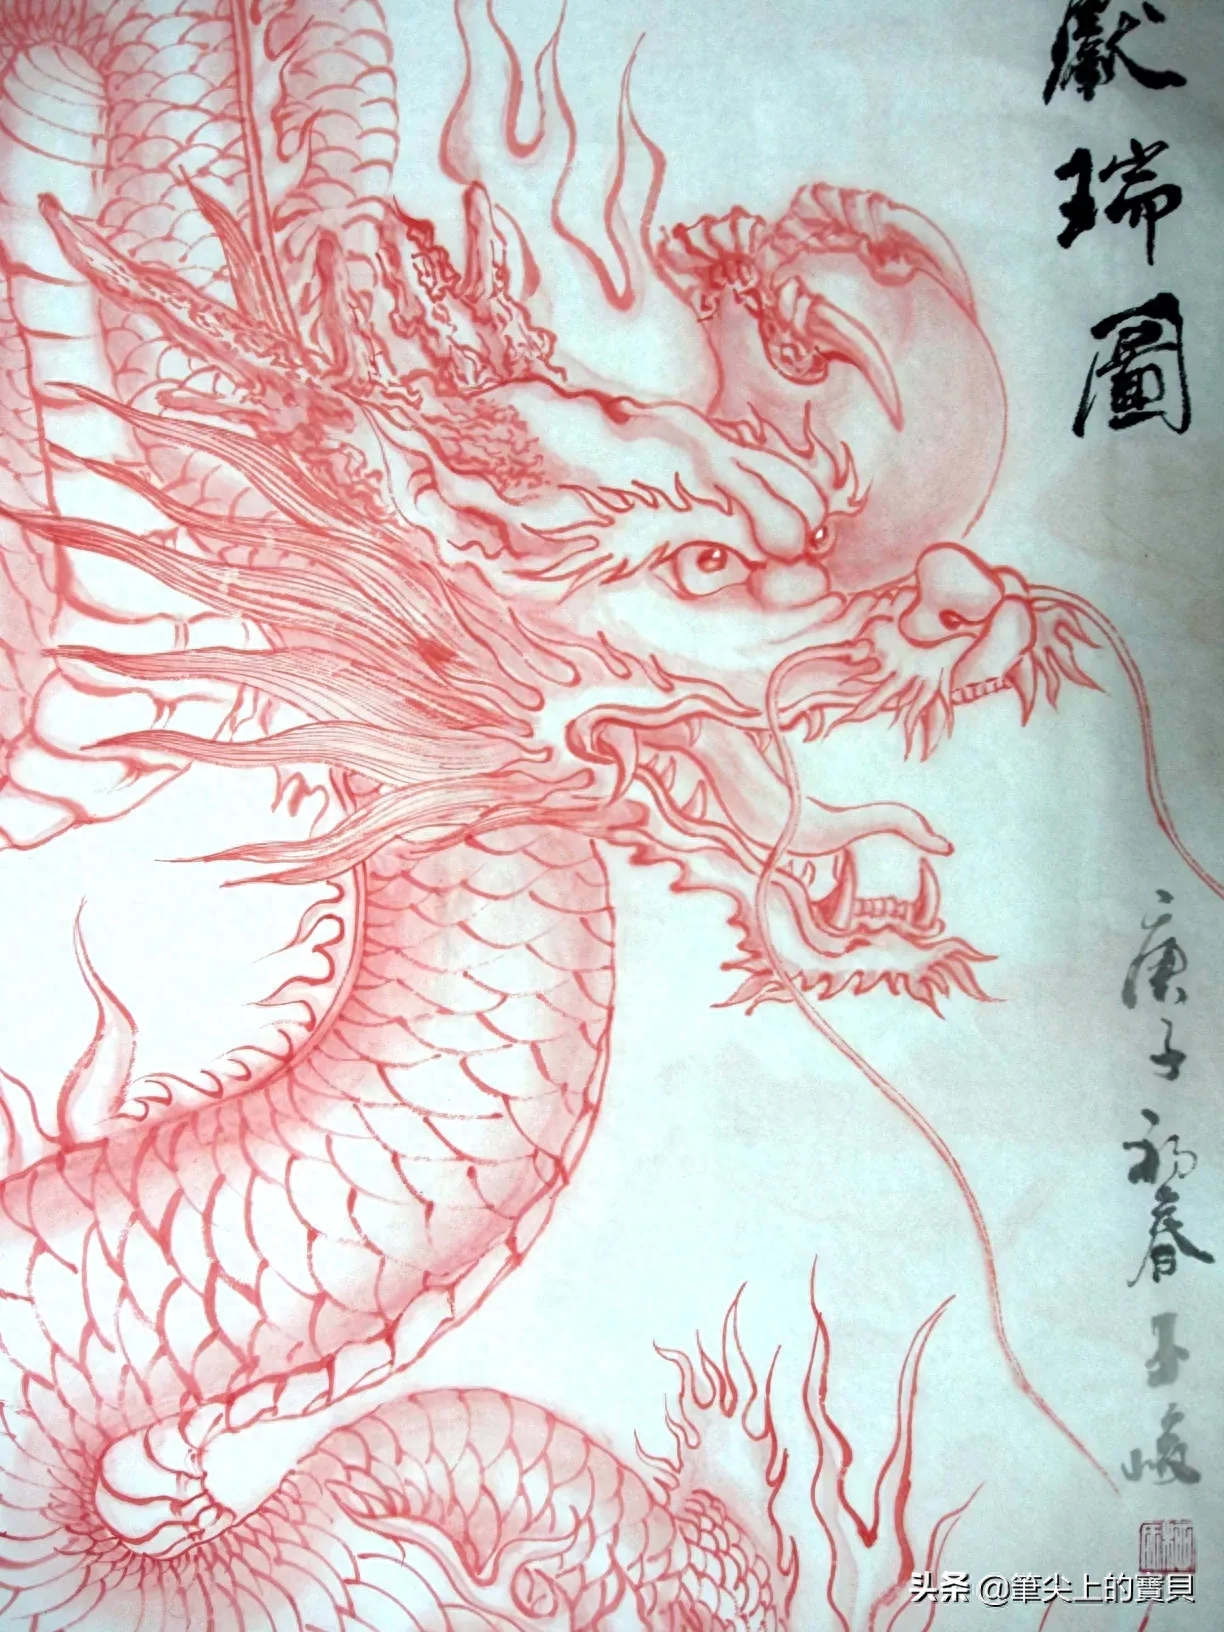 獻瑞圖
庚子初春玉峻
头条 @筆尖上的寶貝